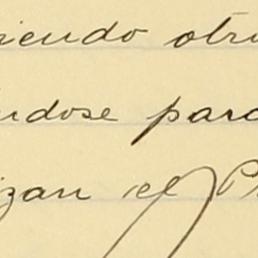 iendo otr
ndose para
izan el P